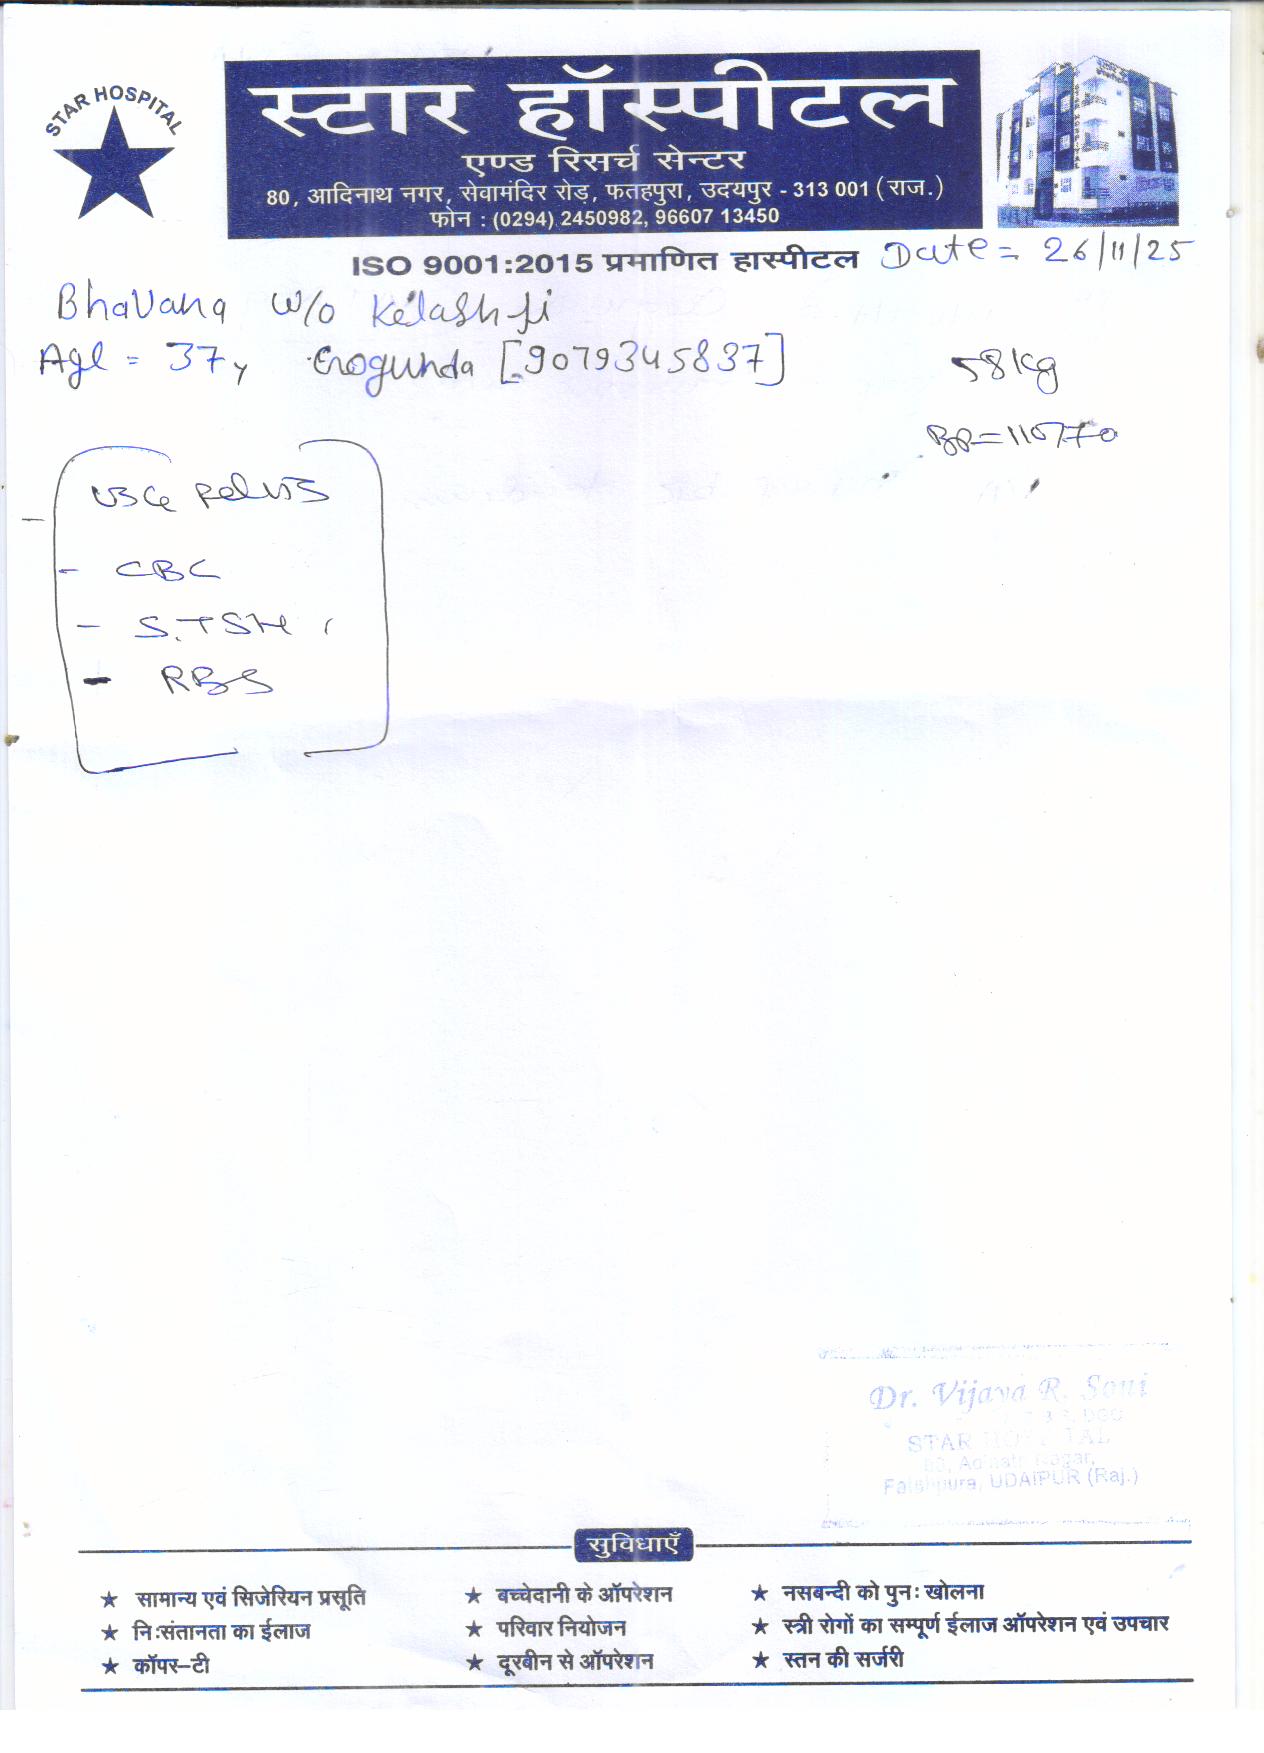 STAR HOSPITAL
स्टार हॉस्पीटल
एण्ड रिसर्च सेन्टर
80, आदिनाथ नगर, सेवामंदिर रोड़, फतहपुरा, उदयपुर - 313 001 (राज.)
फोन : (0294) 2450982, 96607 13450
ISO 9001:2015 प्रमाणित हास्पीटल Date = 26/11/25
Bhavana w/o Kelashji
Age = 37y Gogunda [9079345837] 58 kg
BP = 110/70
USG Pelvis
- CBC
- S.TSH
- RBS
Dr. Vijaya R. Soni
STAR HOSPITAL
80, Adinath Nagar,
Fatehpura, UDAIPUR (Raj.)
सुविधाएँ
★ सामान्य एवं सिजेरियन प्रसूति ★ बच्चेदानी के ऑपरेशन ★ नसबन्दी को पुनः खोलना
★ निःसंतानता का ईलाज ★ परिवार नियोजन ★ स्त्री रोगों का सम्पूर्ण ईलाज ऑपरेशन एवं उपचार
★ कॉपर–टी ★ दूरबीन से ऑपरेशन ★ स्तन की सर्जरी